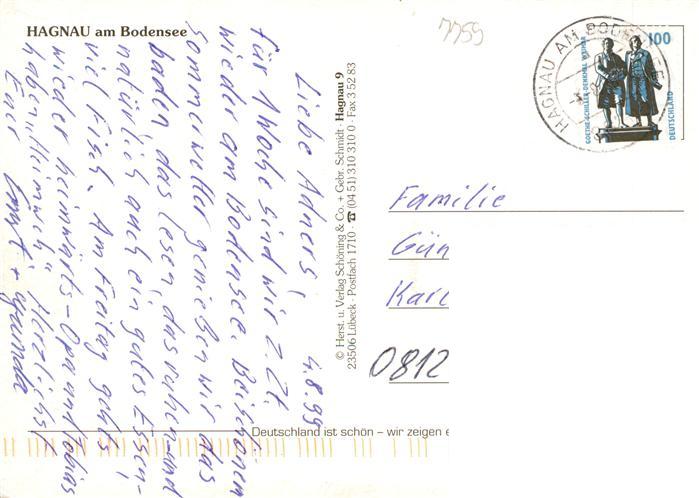 HAGNAU am Bodensee
7759
4.8.99
Liebe Adners,
für 1 Woche sind wir z. Zt.
wieder am Bodensee. Bei schönem
Sommerwetter genießen wir das
baden, das lesen, das ruhen und
natürlich auch ein gutes Essen,
viel Fisch. Am Freitag gehts
wieder heimwärts - Opa und Tobias
haben "Heimweh". Herzlichst
Euer
© Herst. u. Verlag Schöning & Co. + Gebr. Schmidt · Hagnau 9
23506 Lübeck · Postfach 1710 · ☎ (04 51) 310 310 0 · Fax 3 52 83
HAGNAU AM BODENSEE
100
GOETHE-SCHILLER-DENKMAL WEIMAR
DEUTSCHLAND
Familie
Gün
Karl
0812
Deutschland ist schön – wir zeigen e